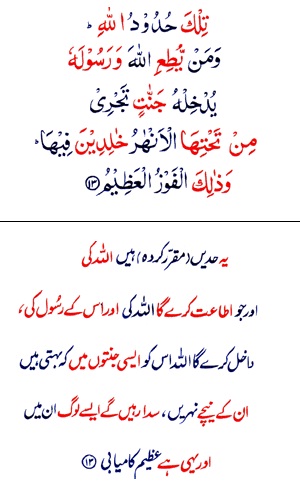 تِلْكَ حُدُوْدُ اللّٰهِ ؕ
وَمَنْ يُّطِعِ اللّٰهَ وَرَسُوْلَهٗ
يُدْخِلْهُ جَنّٰتٍ تَجْرِىْ
مِنْ تَحْتِهَا الْاَنْهٰرُ خٰلِدِيْنَ فِيْهَا ؕ
وَذٰلِكَ الْفَوْزُ الْعَظِيْمُ ﴿۱۳﴾
یہ حدیں (مقرّر کردہ) ہیں اللہ کی
اور جو اطاعت کرے گا اللہ کی اور اس کے رسُول کی ،
داخل کرے گا اللہ اس کو ایسی جنتوں میں کہ بہتی ہیں
ان کے نیچے نہریں ، سدا رہیں گے ایسے لوگ ان میں
اور یہی ہے عظیم کامیابی ﴿۱۳﴾